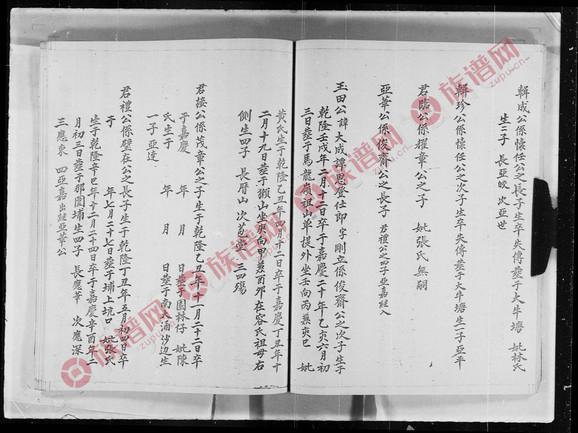 輯成公係懷任公之長子生卒失傳葬于大牛塘 妣林氏
生二子 長亞皎 次亞世
輯珍公係懷任公之次子生卒失傳葬于大牛塘生一子亞平
君臨公係耀章公之子 妣張氏無嗣
亞華公係俊齋公之長子 君禮公之四子亞嘉繼入
玉田公諱大成譚思登仕郎字剛立係俊齋公之次子生于
乾隆壬戌年二月十二日卒于嘉慶二十年乙亥六月初
三日葬于馬龍眉祖山單提外坐壬向丙兼亥巳 妣
黃氏生于乾隆乙丑年四月十二日卒于嘉慶丁丑年十
二月十九日葬于獺山坐夾向甲兼酉卯在容氏祖母右
側生四子 長曆山 次 三四殤
君接公係茂章公之子生于乾隆乙丑年十一月二十二日卒
于嘉慶 年 月 日葬于園林仔 妣陳
氏生于 年 月 日葬于南大浦沙边生
一子 亞逵
君禮公係壁在公之長子生于乾隆丁丑年五月初四日卒
于 年七月二十七日葬于埔上坑口 妣張氏
生于乾隆辛巳年十二月二十四日卒于嘉慶辛酉年二
月初三日葬于那園埔生四子 長應華 次應深
三應東 四亞嘉出繼亞華公
族谱网
zupu.cn